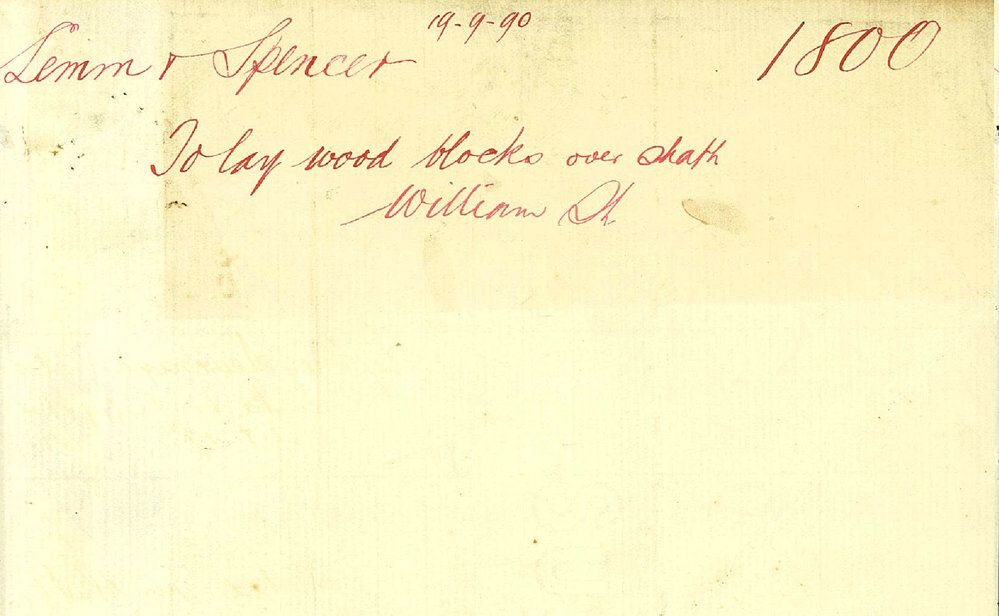 19-9-90
Lemm & Spencer 1800
To lay wood blocks over shaft
William St